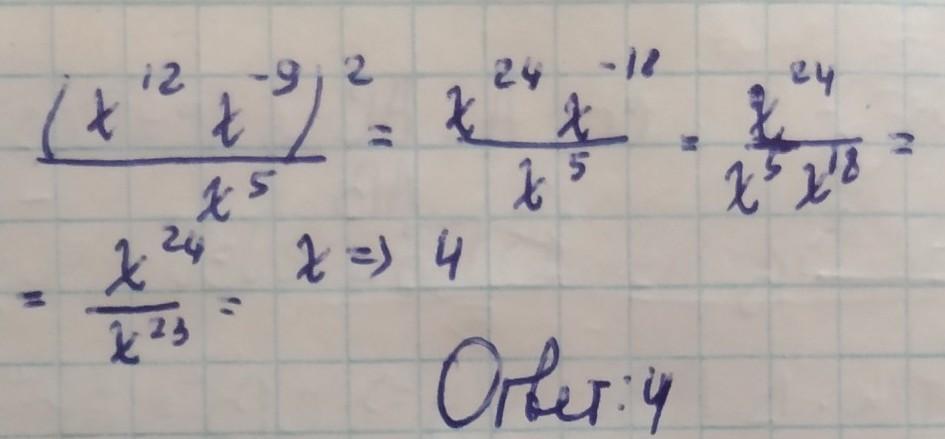 (x^12 x^-9)^2 / x^5 = x^24 x^-18 / x^5 = x^24 / x^5 x^18 =
= x^24 / x^23 = x => 4
Ответ: 4